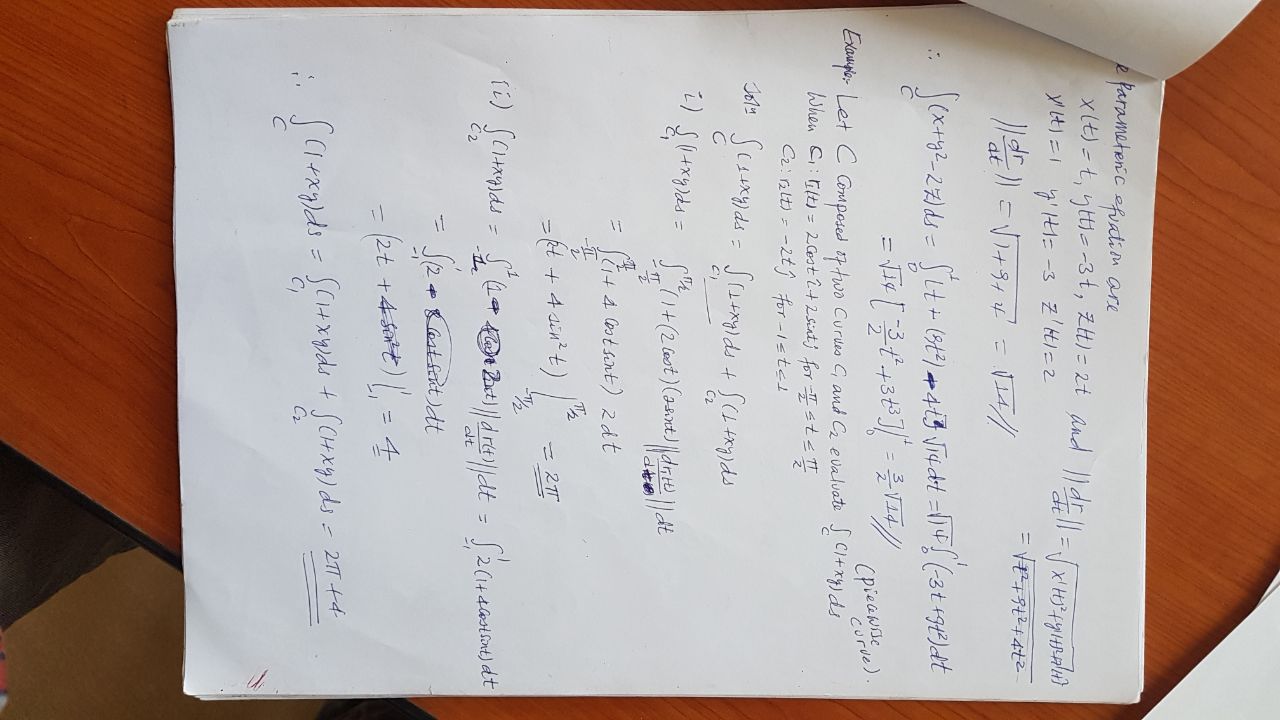 e parametric equation are
x(t) = t, y(t) = -3t, z(t) = 2t and ||dr/dt|| = √x'(t)²+y'(t)²+z'(t)²
x'(t) = 1 y'(t) = -3 z'(t) = 2 = √t²+9t²+4t²
||dr/dt|| = √1+9+4 = √14 //
∴ ∫_C (x+y²-2z)ds = ∫_0^1 (t + (9t²) - 4t) √14 dt = √14 ∫_0^1 (-3t+9t²)dt
= √14 [-3/2 t² + 3t³]_0^1 = 3/2 √14 //
(piecewise curve).
Example:- Let C Composed of two Curves C₁ and C₂ evaluate ∫_C (1+xy)ds
When C₁: r₁(t) = 2cost i + 2sint j for -π/2 ≤ t ≤ π/2
C₂: r₂(t) = -2t j for -1 ≤ t ≤ 1
Soln ∫_C (1+xy)ds = ∫_C₁ (1+xy)ds + ∫_C₂ (1+xy)ds
i) ∫_C₁ (1+xy)ds = ∫_{-π/2}^{π/2} (1+(2cost)(2sint)) ||dr₁(t)/dt|| dt
= ∫_{-π/2}^{π/2} (1 + 4 cost sint) 2dt
= (2t + 4 sin²t) |_{-π/2}^{π/2} = 2π
(ii) ∫_C₂ (1+xy)ds = ∫_{-1}^1 (1 ||dr(t)/dt|| dt = ∫_{-1}^1 2(1+4cost sint)dt
= ∫_{-1}^1 (2 + 8cost sint)dt
= (2t + 4sin²t) |_{-1}^1 = 4
∴ ∫_C (1+xy)ds = ∫_C₁ (1+xy)ds + ∫_C₂ (1+xy)ds = 2π + 4